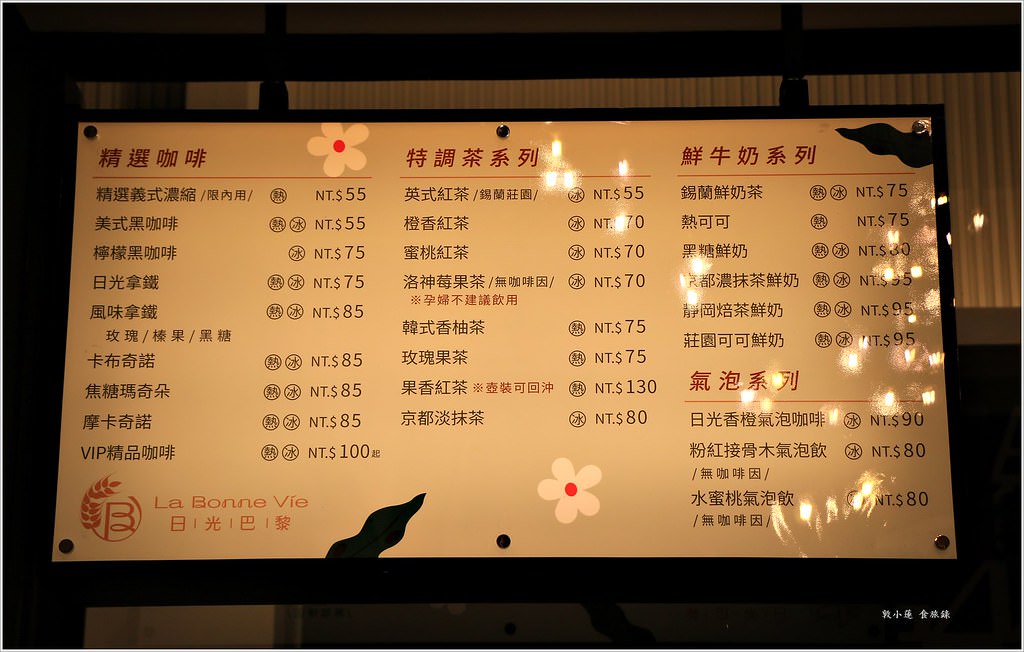 精選咖啡
精選義式濃縮 /限內用/ 熱 NT.$55
美式黑咖啡 熱 冰 NT.$55
檸檬黑咖啡 冰 NT.$75
日光拿鐵 熱 冰 NT.$75
風味拿鐵 熱 冰 NT.$85
玫瑰/榛果/黑糖
卡布奇諾 熱 冰 NT.$85
焦糖瑪奇朵 熱 冰 NT.$85
摩卡奇諾 熱 冰 NT.$85
VIP精品咖啡 熱 冰 NT.$100起
B
La Bonne Vie
日|光|巴|黎
特調茶系列
英式紅茶 /錫蘭莊園/ 冰 NT.$55
橙香紅茶 冰 NT.$70
蜜桃紅茶 冰 NT.$70
洛神莓果茶 /無咖啡因/ 冰 NT.$70
※孕婦不建議飲用
韓式香柚茶 熱 NT.$75
玫瑰果茶 熱 NT.$75
果香紅茶 ※壺裝可回沖 熱 NT.$130
京都淡抹茶 冰 NT.$80
鮮牛奶系列
錫蘭鮮奶茶 熱 冰 NT.$75
熱可可 熱 NT.$75
黑糖鮮奶 熱 冰 NT.$80
京都濃抹茶鮮奶 熱 冰 NT.$95
靜岡焙茶鮮奶 熱 冰 NT.$95
莊園可可鮮奶 熱 冰 NT.$95
氣泡系列
日光香橙氣泡咖啡 冰 NT.$90
粉紅接骨木氣泡飲 冰 NT.$80
/無咖啡因/
水蜜桃氣泡飲 冰 NT.$80
/無咖啡因/
敦小蓮 食旅錄